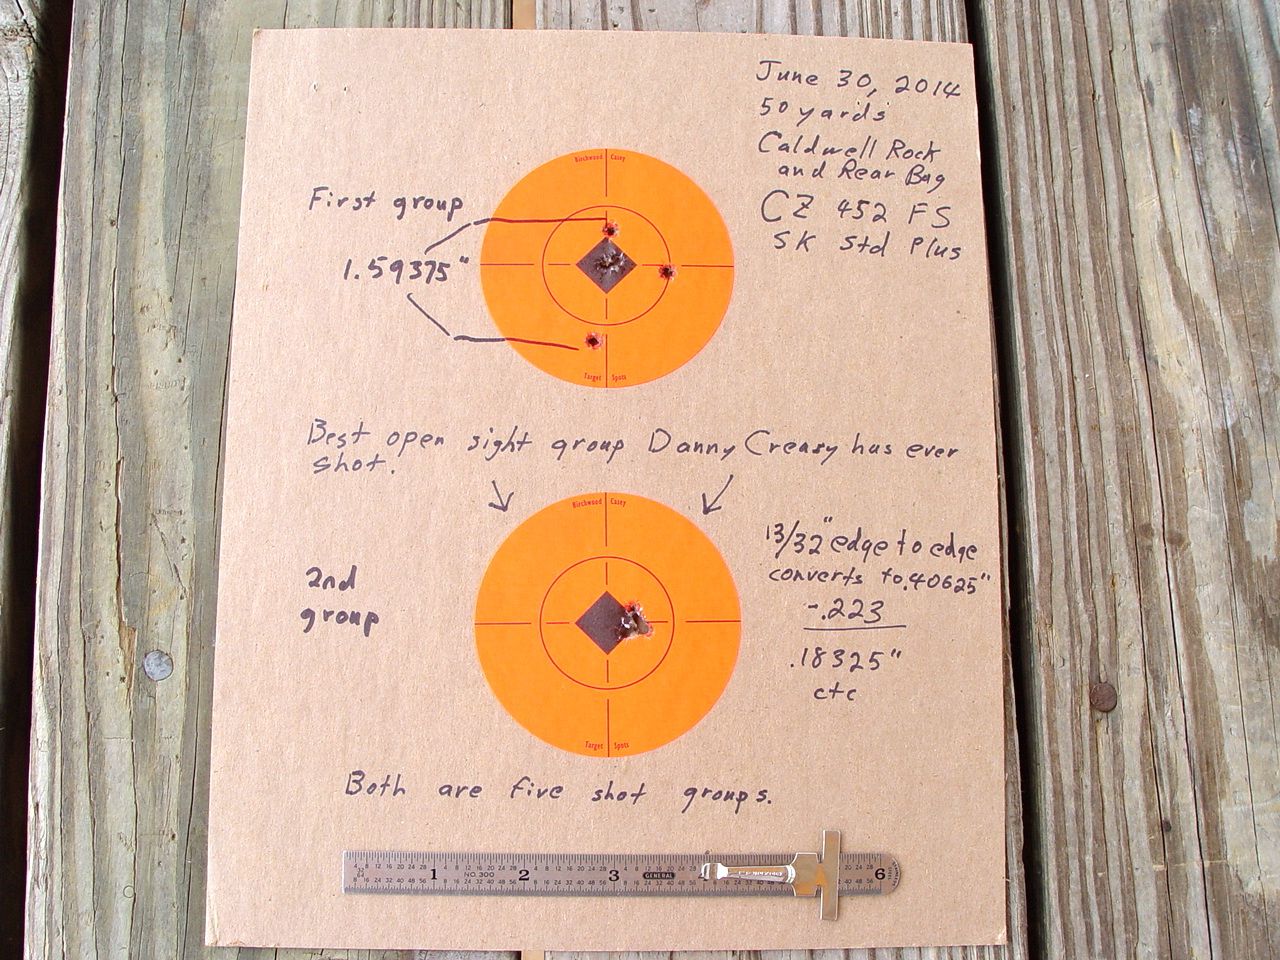 June 30, 2014
50 yards
Caldwell Rock
and Rear Bag
CZ 452 FS
SK Std Plus
Birchwood Casey
First group
1.59375"
Target Spots
Best open sight group Danny Creasy has ever
shot.
Birchwood Casey
13/32" edge to edge
converts to .40625"
-.223
.18325"
ctc
2nd
group
Target Spots
Both are five shot groups.
1 2 3 6
NO. 300
GENERAL